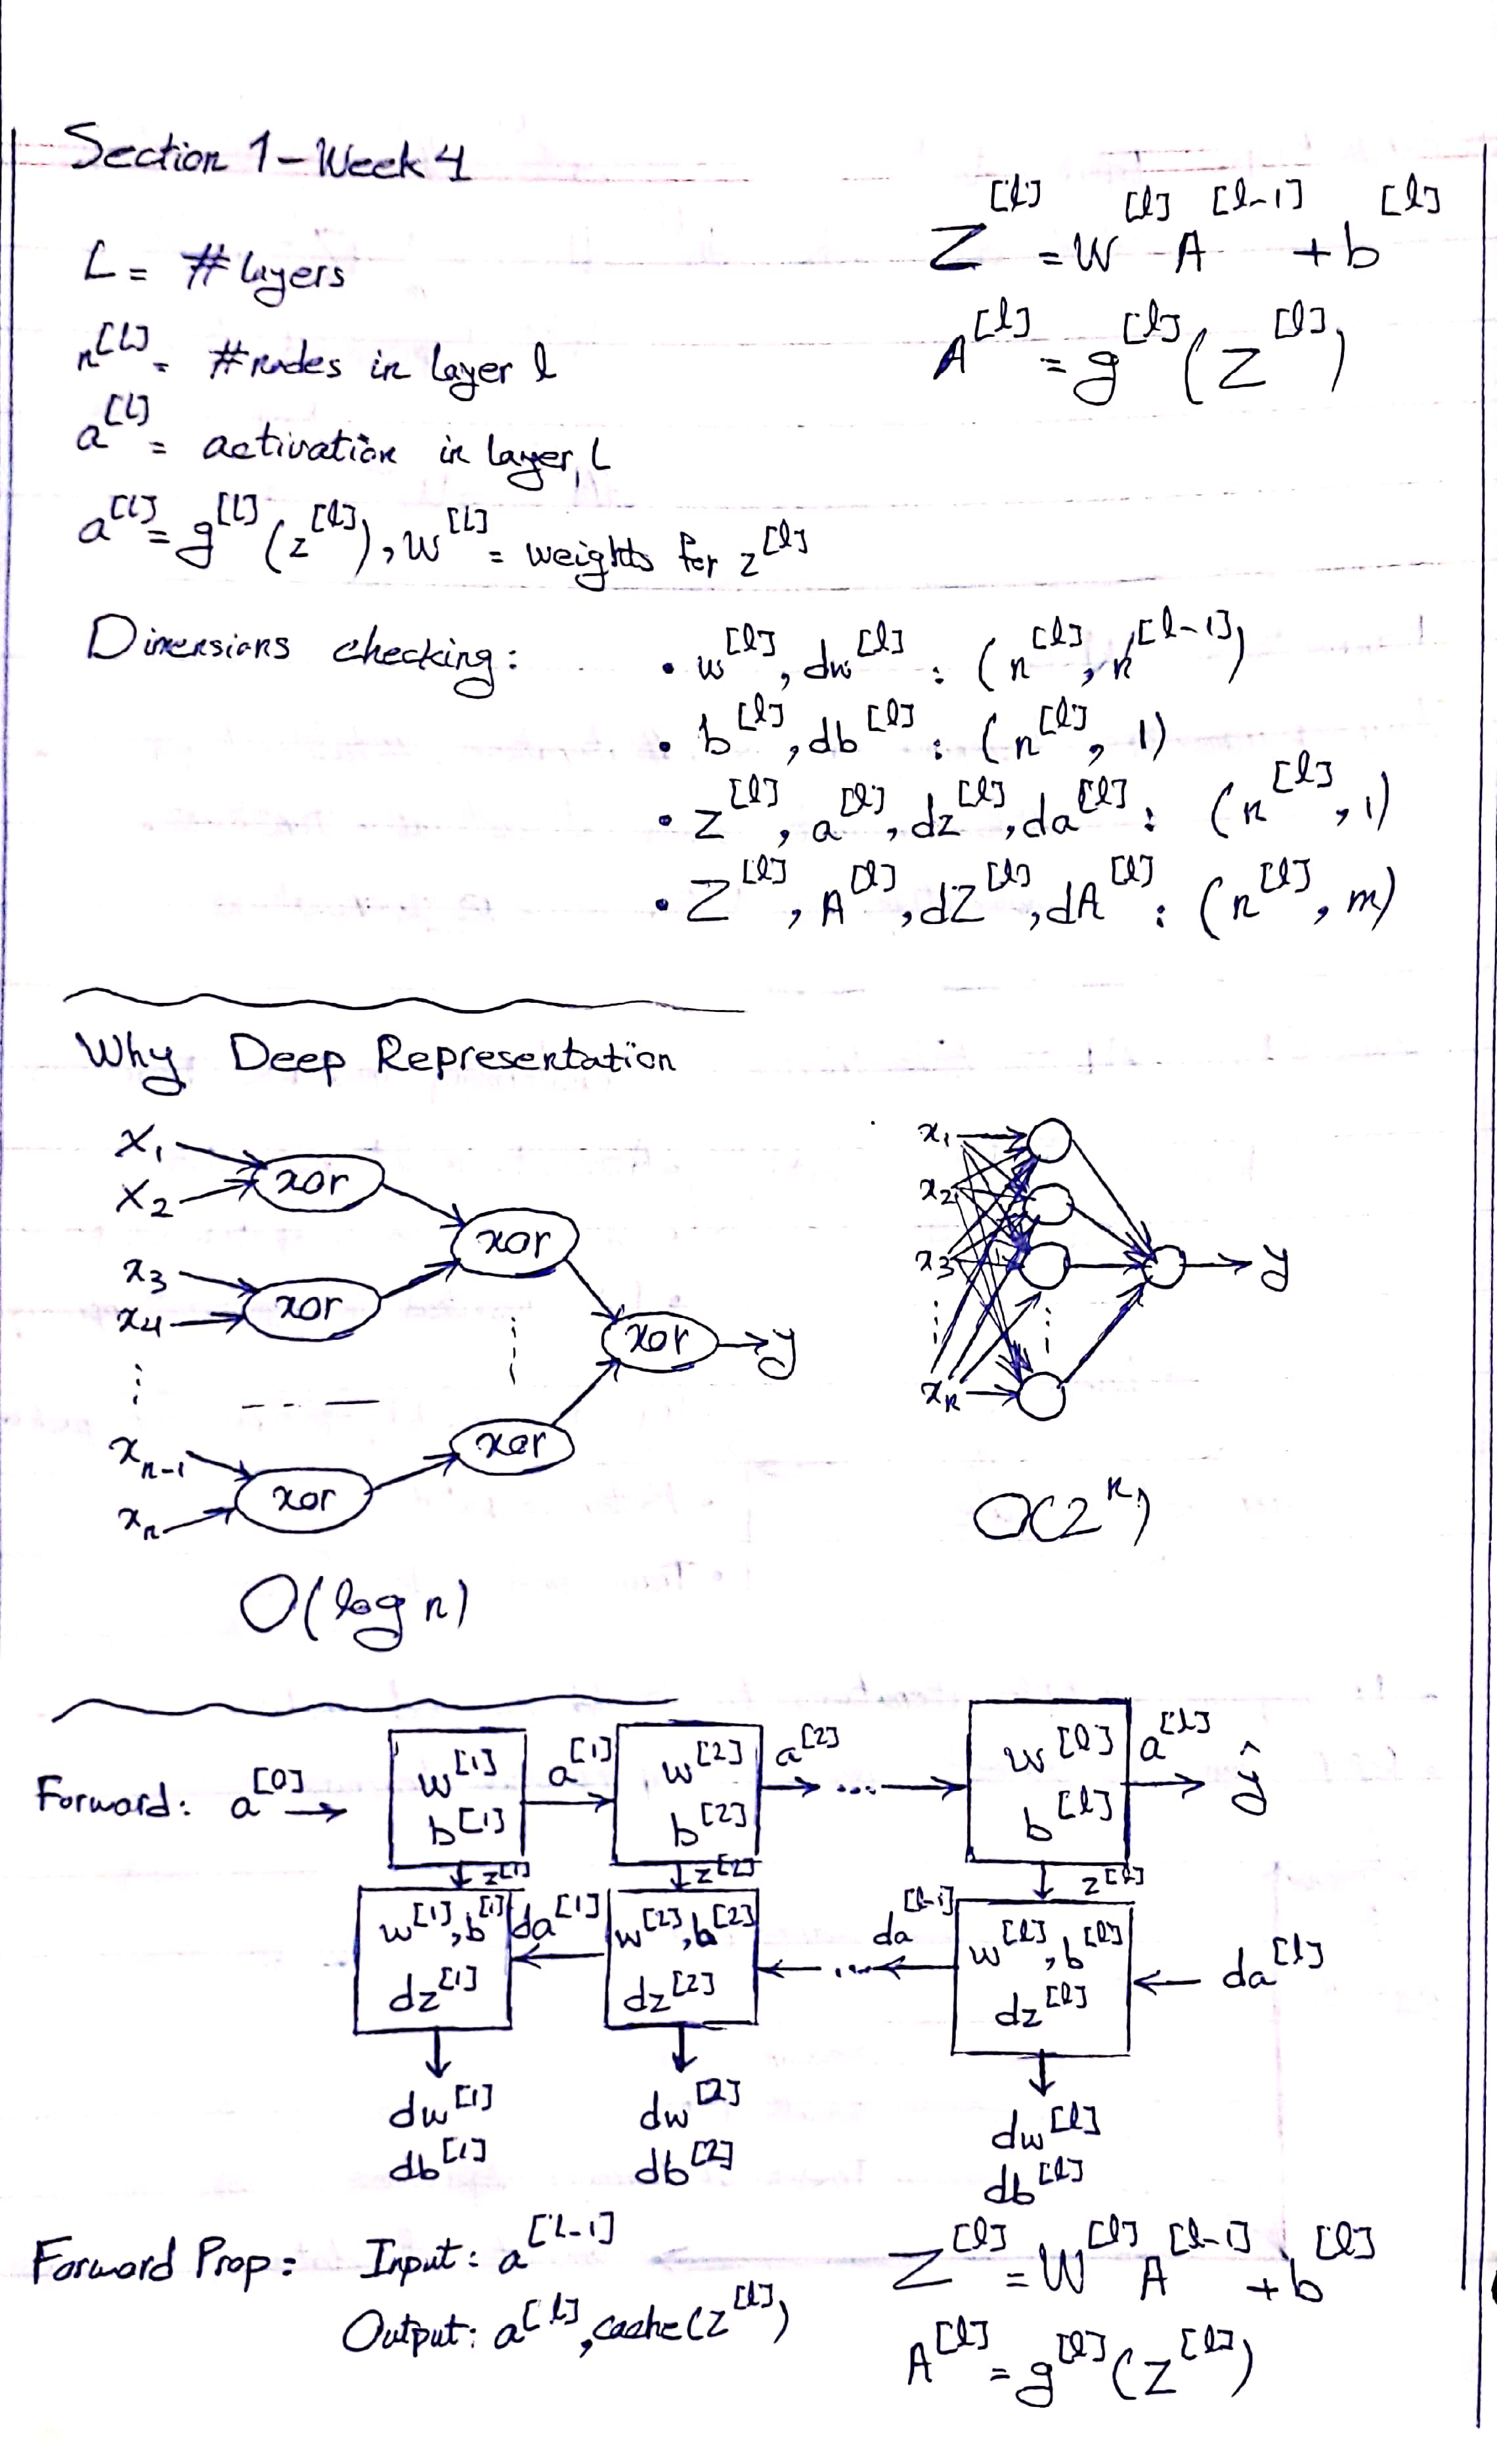 Section 1 - Week 4
L = # layers
n^[L] = # nodes in layer l
a^[L] = activation in layer L
a^[L] = g^[L](z^[l]), w^[L] = weights for z^[l]
Z^[l] = W^[l] A^[l-1] + b^[l]
A^[l] = g^[l](Z^[l])
Dimensions checking:
• w^[l], dw^[l] : (n^[l], n^[l-1])
• b^[l], db^[l] : (n^[l], 1)
• z^[l], a^[l], dz^[l], da^[l] : (n^[l], 1)
• Z^[l], A^[l], dZ^[l], dA^[l] : (n^[l], m)
Why Deep Representation
x₁
x₂
xor
xor
x₃
x₄
xor
xor
y
⋮
xor
xₙ₋₁
xₙ
xor
O(log n)
x₁
x₂
x₃
y
⋮
xₙ
O(2^n)
Forward: a^[0] →
w^[1]
b^[1]
a^[1]
w^[2]
b^[2]
a^[2]
...
w^[l]
b^[l]
a^[l]
ŷ
z^[1]
z^[2]
z^[l]
w^[1], b^[1]
dz^[1]
da^[1]
w^[2], b^[2]
dz^[2]
...
da^[l-1]
w^[l], b^[l]
dz^[l]
← da^[l]
dw^[1]
db^[1]
dw^[2]
db^[2]
dw^[l]
db^[l]
Forward Prop: Input: a^[L-1]
Output: a^[l], cache(z^[l])
Z^[l] = W^[l] A^[l-1] + b^[l]
A^[l] = g^[l](Z^[l])